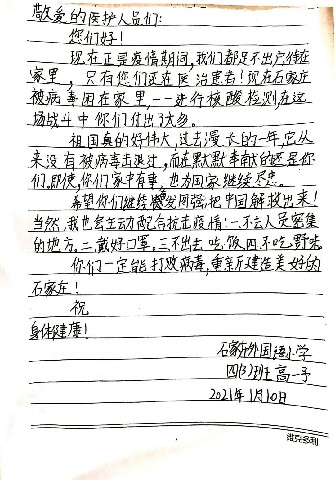 敬爱的医护人员们:
您们好!
现在正是疫情期间,我们都足不出户待在
家里,只有您们还在医治患者!现在石家庄
被病毒困在家里,一一进行核酸检测在这
场战斗中你们付出了太多。
祖国真的好伟大,过去漫长的一年,它从
来没有被病毒击退过,而在默默奉献的还是你
们,即使,你们家中有事,也为国家继续尽忠。
希望你们继续发图强,把中国解救出来!
当然,我也会主动配合抗击疫情:一不去人员密集
的地方,二戴好口罩,三不出去吃饭,四不吃野味
你们一定能打败病毒,重新建造美好的
石家庄!
祝
身体健康!
石家庄外国语小学
四(3)班高一予
2021年1月10日